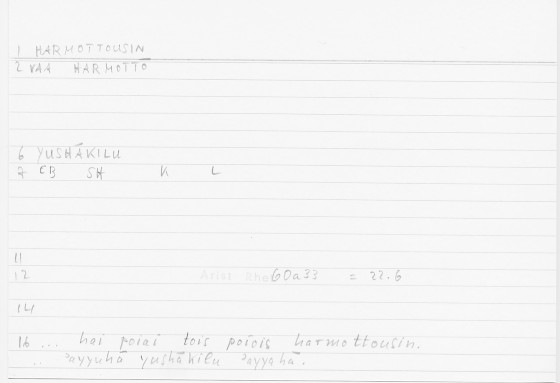 1 HARMOTTOUSIN
2 VAA HARMOTTŌ
6 YUSHĀKILU
7 CB SH K L
11
12 Arist Rhet 60a33 = 22.6
14
16 ... hai poiai tois poiois harmottousin.
.. ʾayyuhā yushākilu ʾayyahā.